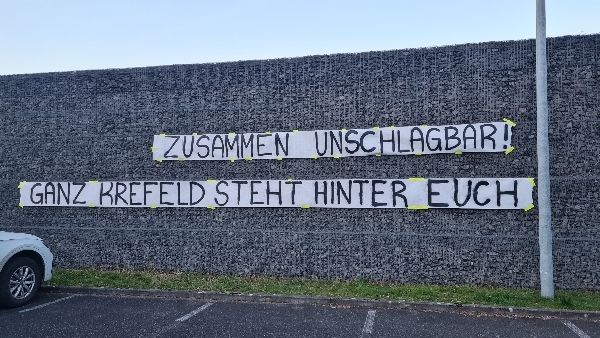 ZUSAMMEN UNSCHLAGBAR!
GANZ KREFELD STEHT HINTER EUCH